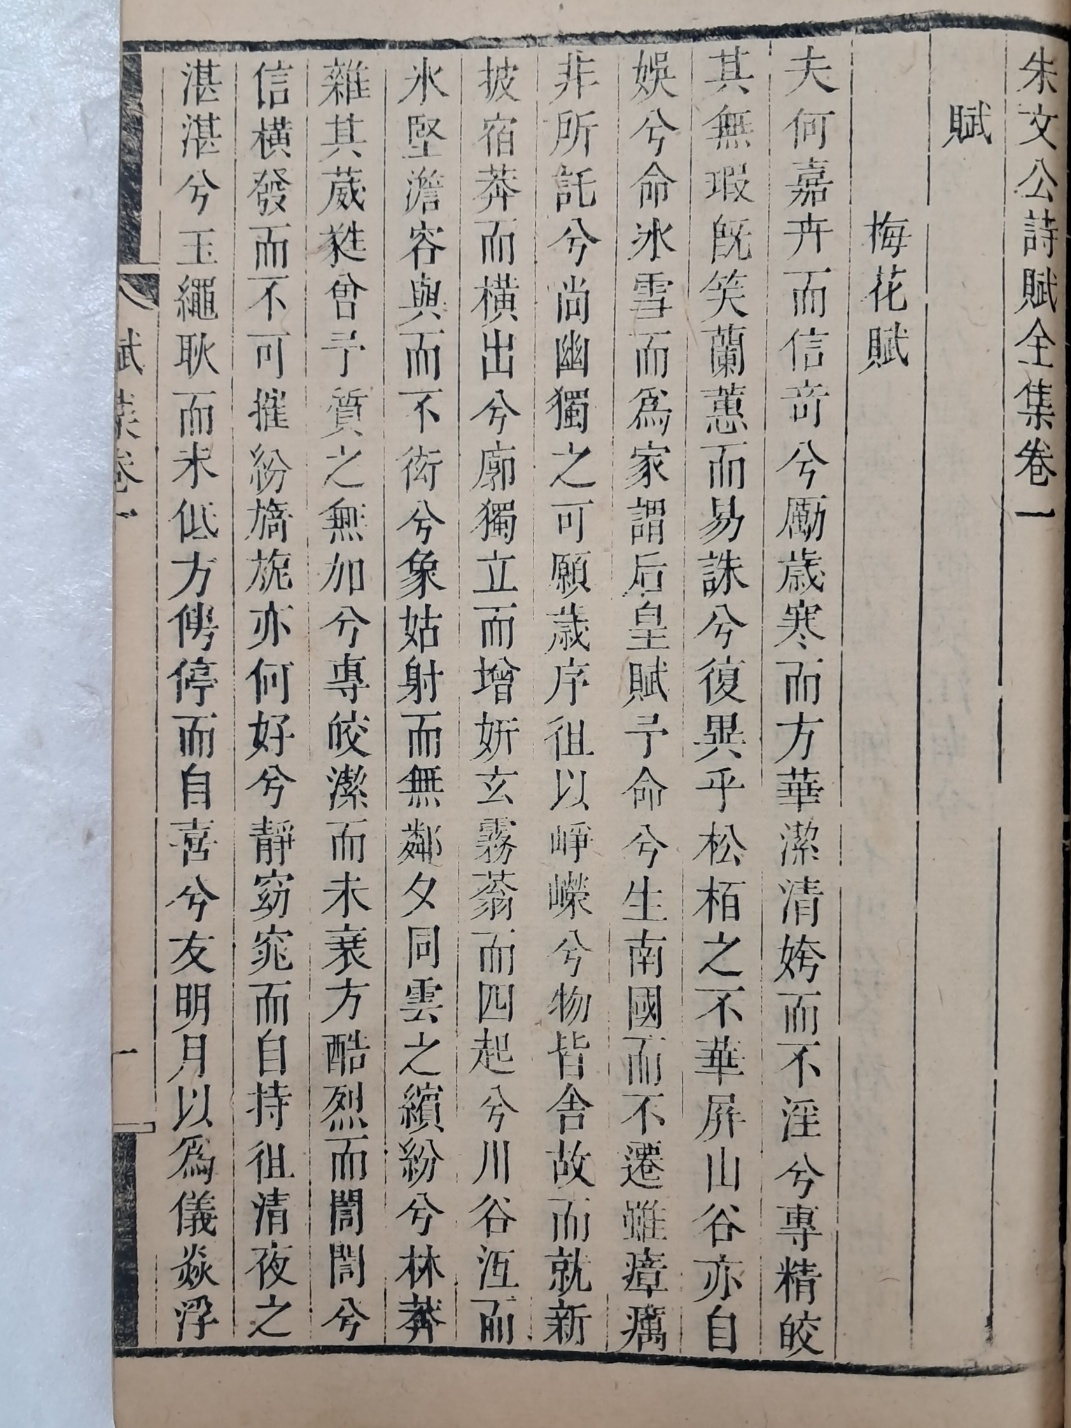 朱文公詩賦全集卷一
賦
梅花賦
夫何嘉卉而信奇兮厲歲寒而方華潔清姱而不淫兮專精皎
其無瑕既笑蘭蕙而易誅兮復異乎松栢之不華屏山谷亦自
娛兮命氷雪而爲家謂后皇賦予命兮生南國而不遷雖瘴癘
非所託兮尚幽獨之可願歲序徂以崢嶸兮物皆舍故而就新
披宿莽而橫出兮廓獨立而增妍玄霧蓊而四起兮川谷沍而
氷堅澹容與而不衒兮象姑射而無鄰夕同雲之繽紛兮林莽
雜其葳蕤曾予質之無加兮專皎潔而未衰方酷烈而誾誾兮
信橫發而不可摧紛旖旎亦何好兮靜窈窕而自持徂清夜之
湛湛兮玉繩耿而未低方俜停而自喜兮友明月以爲儀焱浮
賦集卷一
一